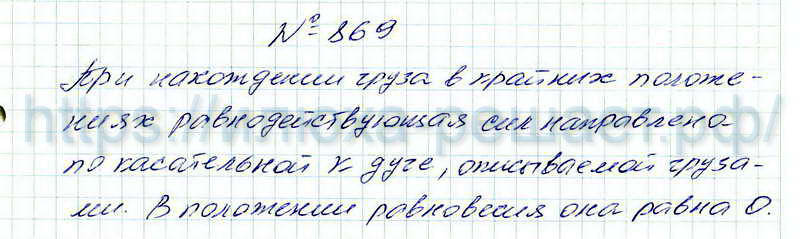 № 869
При нахождении груза в крайних положе-
ниях равнодействующая сил направлена
по касательной к дуге, описываемой груза-
ми. В положении равновесия она равна 0.